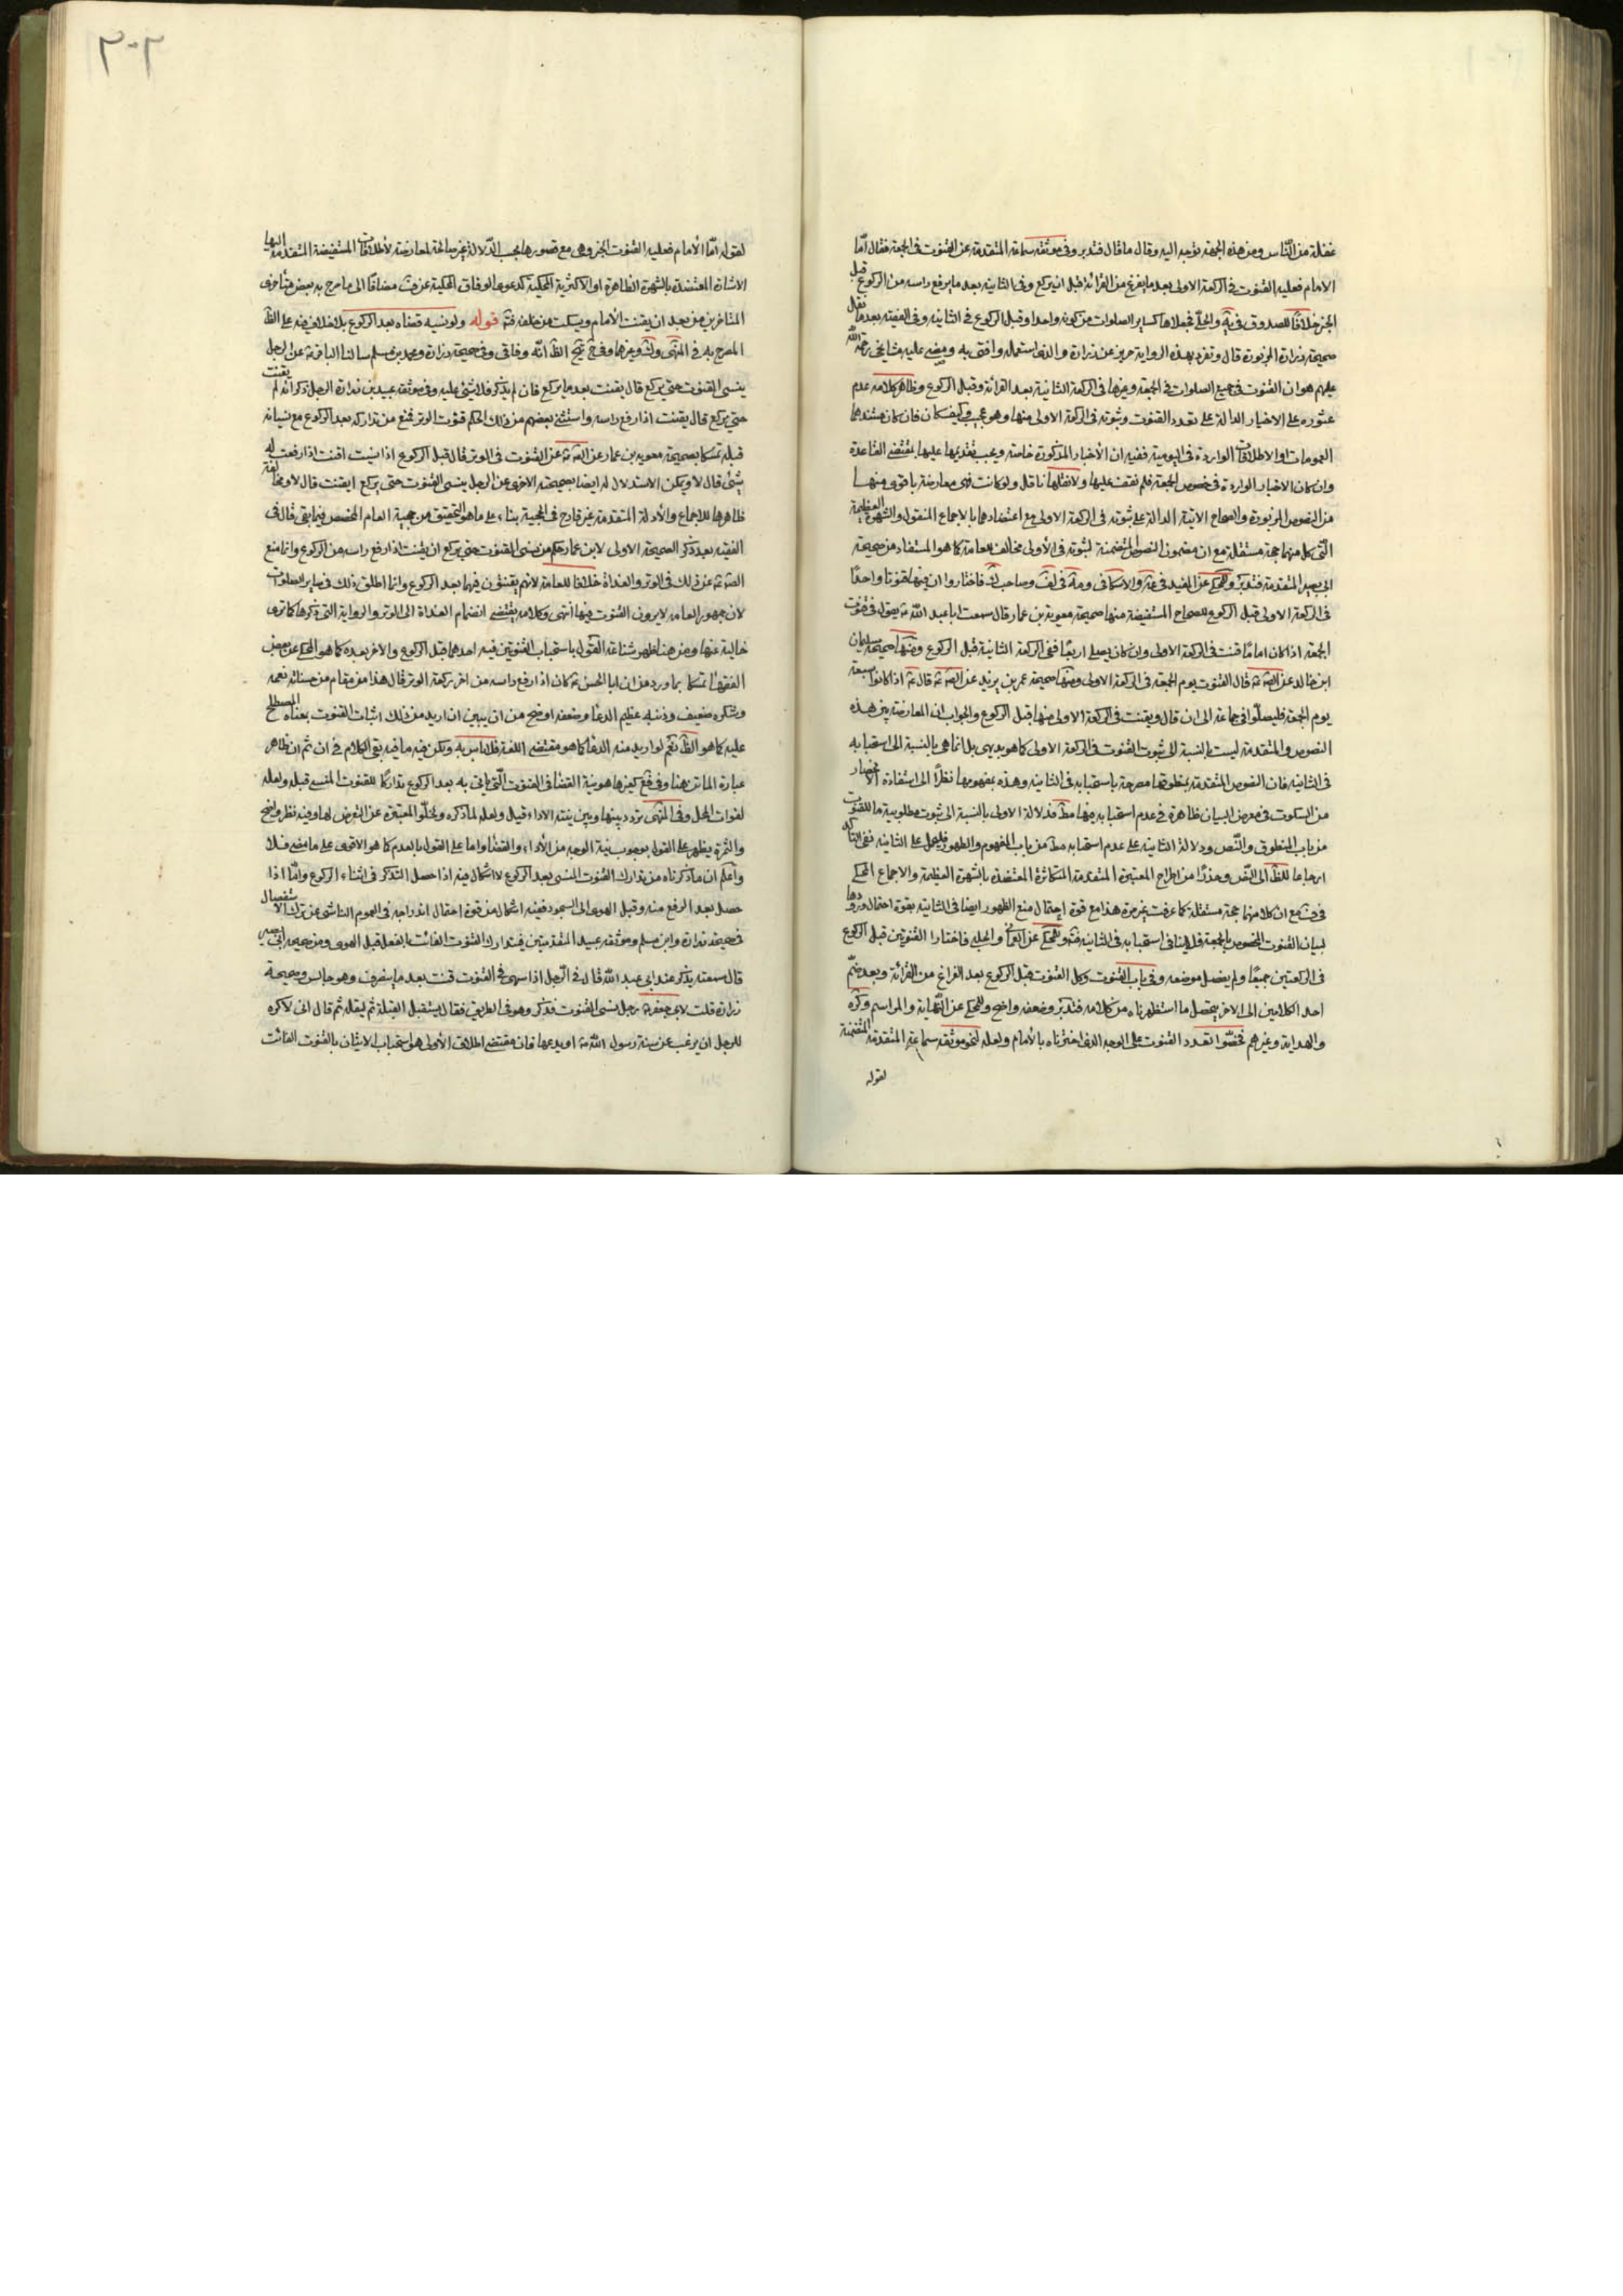 غفلة من الناس ومن هذه الجهة توجه اليه وقال ما قال فتدبر وفى موثقة سماعة المتقدمة عن القنوت فى الجمعة فقال امّا
الامام فعليه القنوت فى الركعة الاولى بعد ما يفرغ من القرائة قبل ان يركع وفى الثانية بعد ما يرفع راسه من الركوع قبل
خلافًا للصدوق فى يه والحلّى فجعلاها كساير الصلوات من كونه واحدا وقبل الركوع فى الثانية وفى الفقيه بعد ما نقل
صحيحة زرارة المزبورة قال وتفرد بهذه الرواية حريز عن زرارة والذى استعمله وافتى به ومضى عليه مشايخى رحمة الله
عليهم هو ان القنوت فى جميع الصلوات فى الجمعة وغيرها فى الركعة الثانية بعد القرائة وقبل الركوع وظاهر كلامه عدم
عثوره على الاخبار الدالة على تعدد القنوت وثبوته فى الركعة الاولى منها وهو عجيب وكيف كان فان كان مستندهما
العمومات او الاطلاقات الواردة فى اليومية ففيه ان الأخبار المذكورة خاصة ويجب تقديمها عليها بمقتضى القاعدة
وان كان الاخبار الواردة فى خصوص الجمعة فلم نقف عليها ولا نقلها ناقل ولو كانت فهى معارضة باقوى منها
من النصوص المزبورة والصحاح الاتية الدالة على ثبوته فى الركعة الاولى مع اعتضادهما بالاجماع المنقول والشهرة العظيمة
التى كل منهما حجة مستقلة مع ان مضمون النصوص المتضمنة لثبوته فى الأولى مخالف للعامة كما هو المستفاد من صحيحة
ابى بصير المتقدمة فتدبر وللمحكى عن المفيد فى والاسكافى فى لف وصاحب فاختاروا ان فيها قنوتا واحدًا
فى الركعة الاولى قبل الركوع للصحاح المستفيضة منها صحيحة معوية بن عمار قال سمعت ابا عبد الله ع يقول فى قنوت
الجمعة اذا كان امامًا قنت فى الركعة الاولى وان كان يصلى اربعًا ففى الركعة الثانية قبل الركوع ومنها صحيحة سليمان
ابن خالد عن الصادق ع قال القنوت يوم الجمعة فى الركعة الاولى ومنها صحيحة عمر بن يزيد عن قال ع اذا كانوا سبعة
يوم الجمعة فليصلّوا فى جماعة الى ان قال ويقنت فى الركعة الاولى منها قبل الركوع والجواب ان المعارضة بين هذه
النصوص والمتقدمة ليست بالنسبة الى ثبوت القنوت فى الركعة الاولى كما هو بديهى بل انما هى بالنسبة الى استحبابه
فى الثانية فان النصوص المتقدمة بمنطوقها مصرحة باستحبابه فى الثانية وهذه بمفهومها نظرًا الى استفادة الانحصار
من السكوت فى معرض البيان ظاهرة فى عدم استحبابه فيها فدلالة الاولى بالنسبة الى ثبوت مطلوبية ما للقنوت
من باب المنطوق والنّص ودلالة الثانية على عدم استحبابه من باب المفهوم والظهور فليحمل على الثانية نفى التأكد
ارجاعا للظ الى النّص وحذرًا من اطراح المعتبرة المتقدمة المتكاثرة المعتضدة بالشهرة العظيمة والاجماع المحكى
مع ان كلا منهما حجة مستقلة كما عرفت غير مرة هذا مع قوة احتمال منع الظهور ايضا فى الثانية بقوة احتمال ورودها
لبيان القنوت المخصوص بالجمعة فلا ينافى استحبابه فى الثانية وللمحكى عن العمانى والحلبى فاختارا القنوتين قبل الركوع
فى الركعتين جميعًا ولم يفصل موضعه وفى باب القنوت وكل القنوت قبل الركوع بعد الفراغ من القرائة وبعد ضمّ
احد الكلامين الى الاخر يحصل ما استظهرناه من كلامه فتدبر وضعفه واضح وللمحكى عن النّهاية والمراسم وكره
والهداية وغيرهم فخصّوا تعدد القنوت على الوجه الذى اخترناه بالأمام ولعله لنحو موثقة سماعة المتقدمة المتضمنة
لقوله
٣٠٢
لقوله امّا الأمام فعليه القنوت الخبر وهى مع قصورها بحسب الدّلالة غير صالحة لمعارضة لأطلاقات المستفيضة المتقدمة اليها
الاشارة المعتضدة بالشهرة الظاهرة او الاكثرية المحكية كدعوى الوفاق المحكية عن مضافًا الى ما صرح به بعض متأخرى
المتاخرين من بعد ان يقنت الأمام ويسكت من خلفه قوله ولو نسيه قضاه بعد الركوع بلا خلاف فيه على الظ
المصرح به فى المنتهى وغيرها وفى الظ انّه وفاقى وفى صحيحة زرارة ومحمد بن مسلم سالنا الباقر ع عن الرجل
ينسى القنوت حتى يركع قال يقنت بعد ما يركع فان لم يذكر فلا شئ عليه وفى موثقة عبيد بن زرارة الرجل ذكر انه لم يقنت
حتى يركع قال يقنت اذا رفع راسه واستثنى بعضهم من ذلك الحكم قنوت الوتر فمنع من تداركه بعد الركوع مع نسيانه
قبله تمسكا بصحيحة معوية بن عمار عن القنوت فى الوتر قال قبل الركوع اذا نسيت اقنت اذا رفعت
قال لا ويمكن الاستدلال له ايضا بصحيحته الاخرى عن الرجل ينسى القنوت حتى يركع ايقنت قال لا ومخالفة
ظاهرها للاجماع والأدلة المتقدمة غير قادح فى الحجية بناء على ما هو التحقيق من حجية العام المخصص فيما بقى قال فى
الفقيه بعد ذكر الصحيحة الاولى لابن عمار حكم من ينسى القنوت حتى يركع ان يقنت اذا رفع راسه من الركوع وانما منع
الصادق ع عن ذلك فى الوتر والغداة خلافا للعامة لانهم يقنتون فيهما بعد الركوع وانما اطلق ذلك فى ساير الصلوات
لان جمهور العامة لا يرون القنوت فيها انتهى وكلامه يقتضى انضمام الغداة الى الوتر والرواية التى ذكرها كما ترى
خالية عنها ومن هنا ظهر شناعة القول باستحباب القنوتين فيه احدهما قبل الركوع والاخر بعده كما هو المحكى عن بعض
الفقهاء تمسكا بما ورد من ان ابا الحسن ع كان اذا رفع راسه من اخر ركعة الوتر قال هذا مقام من حسناته نعمة
وشكره ضعيف وذنبه عظيم الدعاء وضعفه اوضح من ان يبين ان اريد من ذلك اثبات القنوت بمعناه المصطلح
عليه كما هو الظ نعم لو اريد منه الدعاء كما هو مقتضى اللغة فلا باس به ولكن فيه ما فيه بقى الكلام فى ان ثم ان ظاهر
عبارة الماتن هنا وفى كغيرها هو نية القضاء فى القنوت الّتى ياتى به بعد الركوع تداركًا للقنوت المنسى قبله ولعله
لفوات المحل وفى المنتهى تردد بينها وبين نيته الاداء قيل ولعله لما ذكره ولخلّو المعتبرة عن التعرض لها وفيه نظر واضح
والثمرة يظهر على القول بوجوب نية الوجه من الأداء والقضاء واما على القول بالعدم كما هو الاقوى على ما مضى فلا
واعلم ان ما ذكرناه من تدارك القنوت المنسى بعد الركوع لا اشكال فيه اذا حصل التذكر فى اثناء الركوع وامّا اذا
حصل بعد الرفع منه وقبل الهوى الى السجود ففيه اشكال من قوة احتمال اندراجه فى العموم الناشى عن ترك الاستفصال
فى صحيحة زرارة وابن مسلم وموثقة عبيد المتقدمتين فيتدارك القنوت الفائت بالفعل قبل الهوى ومن صحيحة ابى بصير
قال سمعته يذكر عند ابى عبد الله قال فى الرّجل اذا سهى فى القنوت قنت بعد ما ينصرف وهو جالس وصحيحة
زرارة قلت لابى جعفر ع رجل نسى القنوت فذكر وهو فى الطريق فقال يستقبل القبلة ثم ليقله ثم قال انى لاكره
للرجل ان يرغب عن سنة رسول الله ص او يدعها فان مقتضى اطلاق الأولى هو استحباب الاتيان بالقنوت الفائت